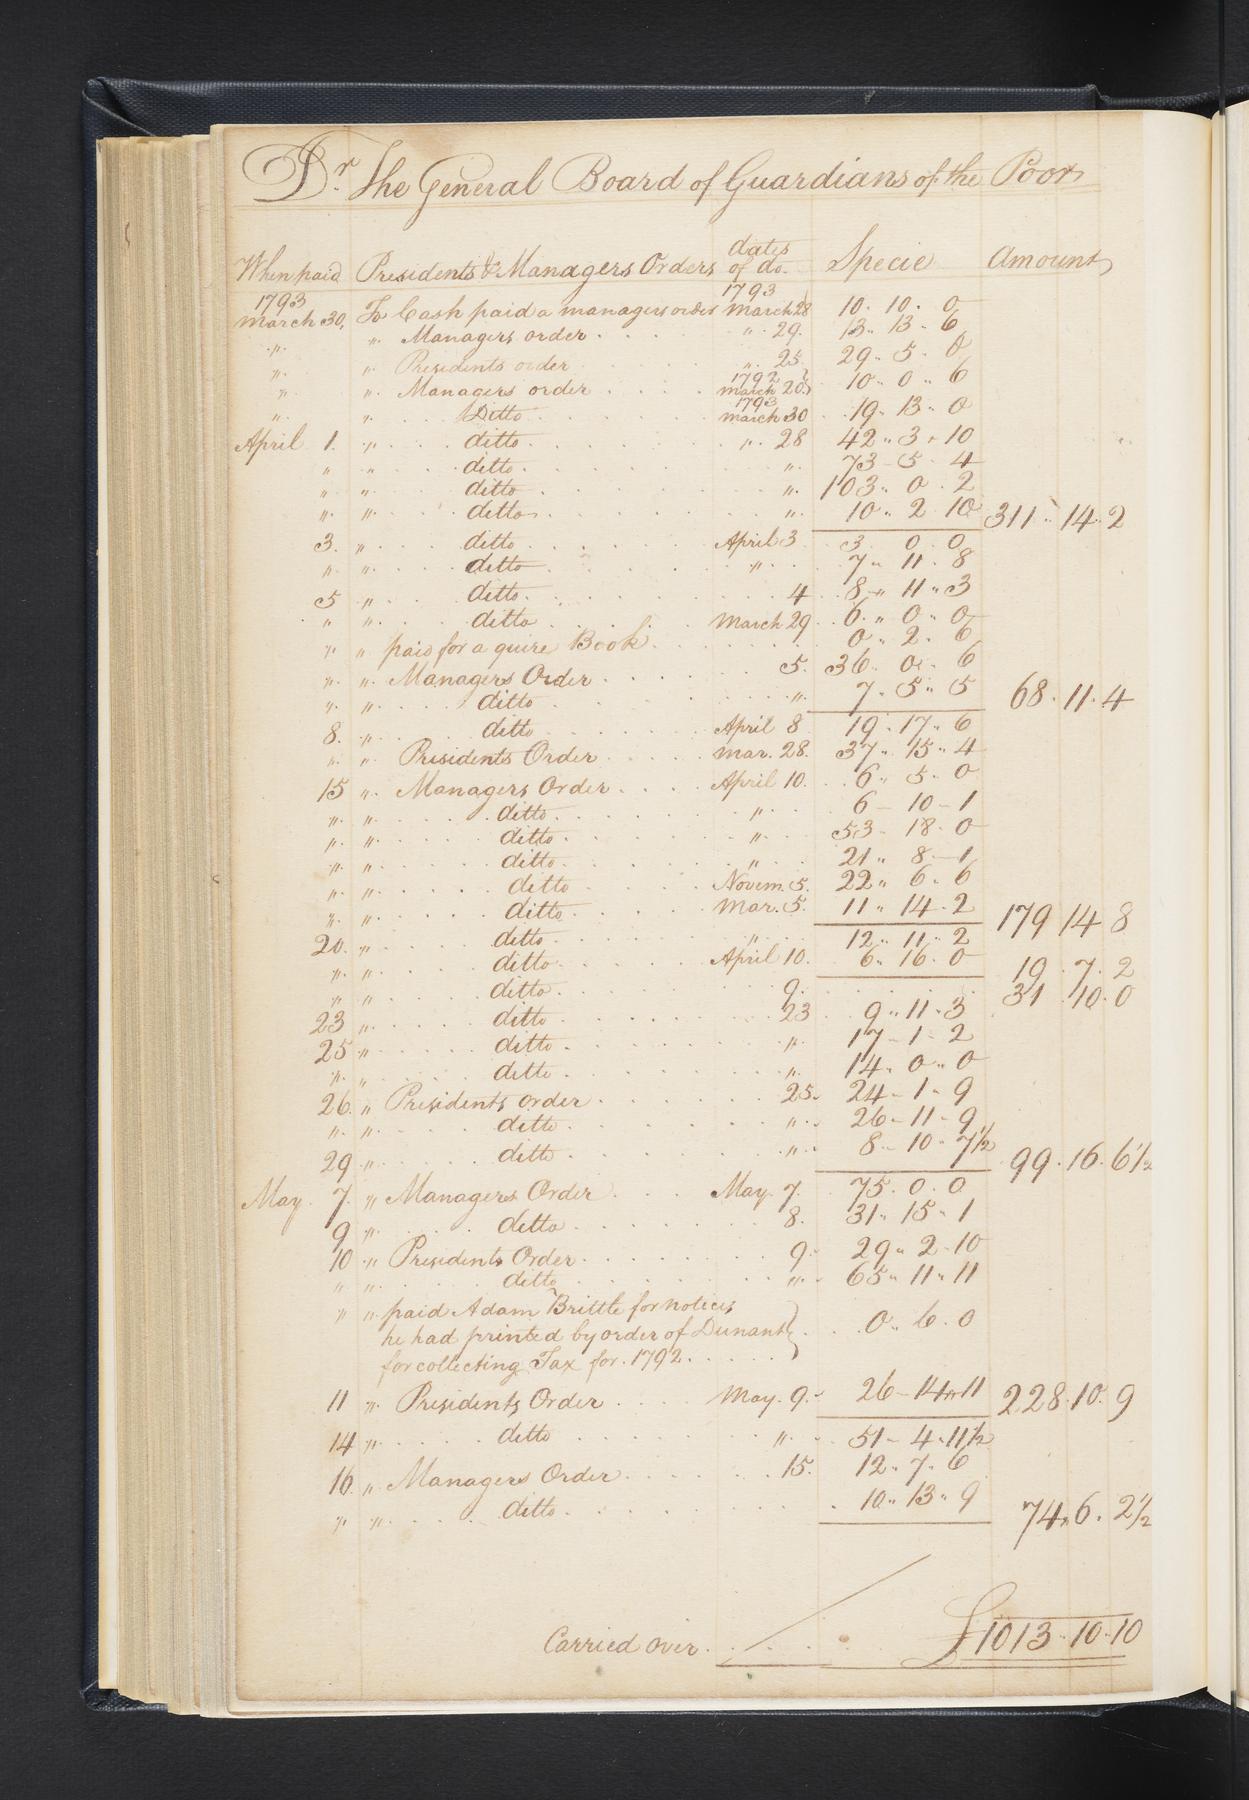 Dr. The General Board of Guardians of the Poor
When paid Presidents & Managers Orders dates of do. Specie Amount
1793 1793
March 30, To Cash paid a managers order March 28 10. 10. 0
". ". Managers order . . . . ". 29. 13. 13. 6
". ". Presidents order . . . . ". 25. 29. 5. 0
". ". Managers order . . . . 1792 March 20. 10. 0. 6
". ". Ditto . . . . 1793 March 30 19. 13. 0
April 1. ". ditto . . . . ". 28 42. 3. 10
". ". ditto . . . . ". 73. 5. 4
". ". ditto . . . . ". 103. 0. 2
". ". ditto . . . . ". 10. 2. 10 311. 14. 2
3. ". ditto . . . . April 3 3. 0. 0
". ". ditto . . . . ". 7. 11. 8
5 ". ditto . . . . 4 8. 11. 3
". ". ditto . . . . March 29 6. 0. 0
". ". paid for a quire Book . . . . 0. 2. 6
". ". Managers Order . . . . 5. 36. 0. 6
". ". ditto . . . . ". 7. 5. 5 68. 11. 4
8. ". ditto . . . . April 8 19. 17. 6
". ". Presidents Order . . . . Mar. 28. 37. 15. 4
15 ". Managers Order . . . . April 10. 6. 5. 0
". ". ditto . . . . ". 6 - 10 - 1
". ". ditto . . . . ". 53. 18. 0
". ". ditto . . . . ". 21. 8. 1
". ". ditto . . . . Novem. 5. 22. 6. 6
". ". ditto . . . . Mar. 5. 11. 14. 2 179 14 8
20. ". ditto . . . . ". 12. 11. 2
". ". ditto . . . . April 10. 6. 16. 0 19. 7. 2
". ". ditto . . . . 9. . . . . 31. 10. 0
23 ". ditto . . . . 23 9. 11. 3
25 ". ditto . . . . ". 17 - 1 - 2
". ". ditto . . . . ". 14. 0. 0
26. ". Presidents order . . . . 25. 24 - 1 - 9
". ". ditto . . . . ". 26 - 11 - 9
29 ". ditto . . . . ". 8 - 10 - 7½ 99. 16. 6½
May. 7. ". Managers Order . . . . May. 7. 75. 0. 0
9 ". ditto . . . . 8. 31. 15. 1
10 ". Presidents Order . . . . 9. 29. 2. 10
". ". ditto . . . . ". 65. 11. 11
". ". paid Adam Brittle for notices
he had printed by order of Dunant } . . 0. 6. 0
for collecting Tax for. 1792 . . . .
11 ". Presidents Order . . . . May. 9. 26 - 14 - 11 228. 10. 9
14 ". ditto . . . . ". 51 - 4. 11½
16. ". Managers Order . . . . 15. 12. 7. 6
". ". ditto . . . . 10. 13. 9 74. 6. 2½
Carried over . . . . £1013. 10. 10